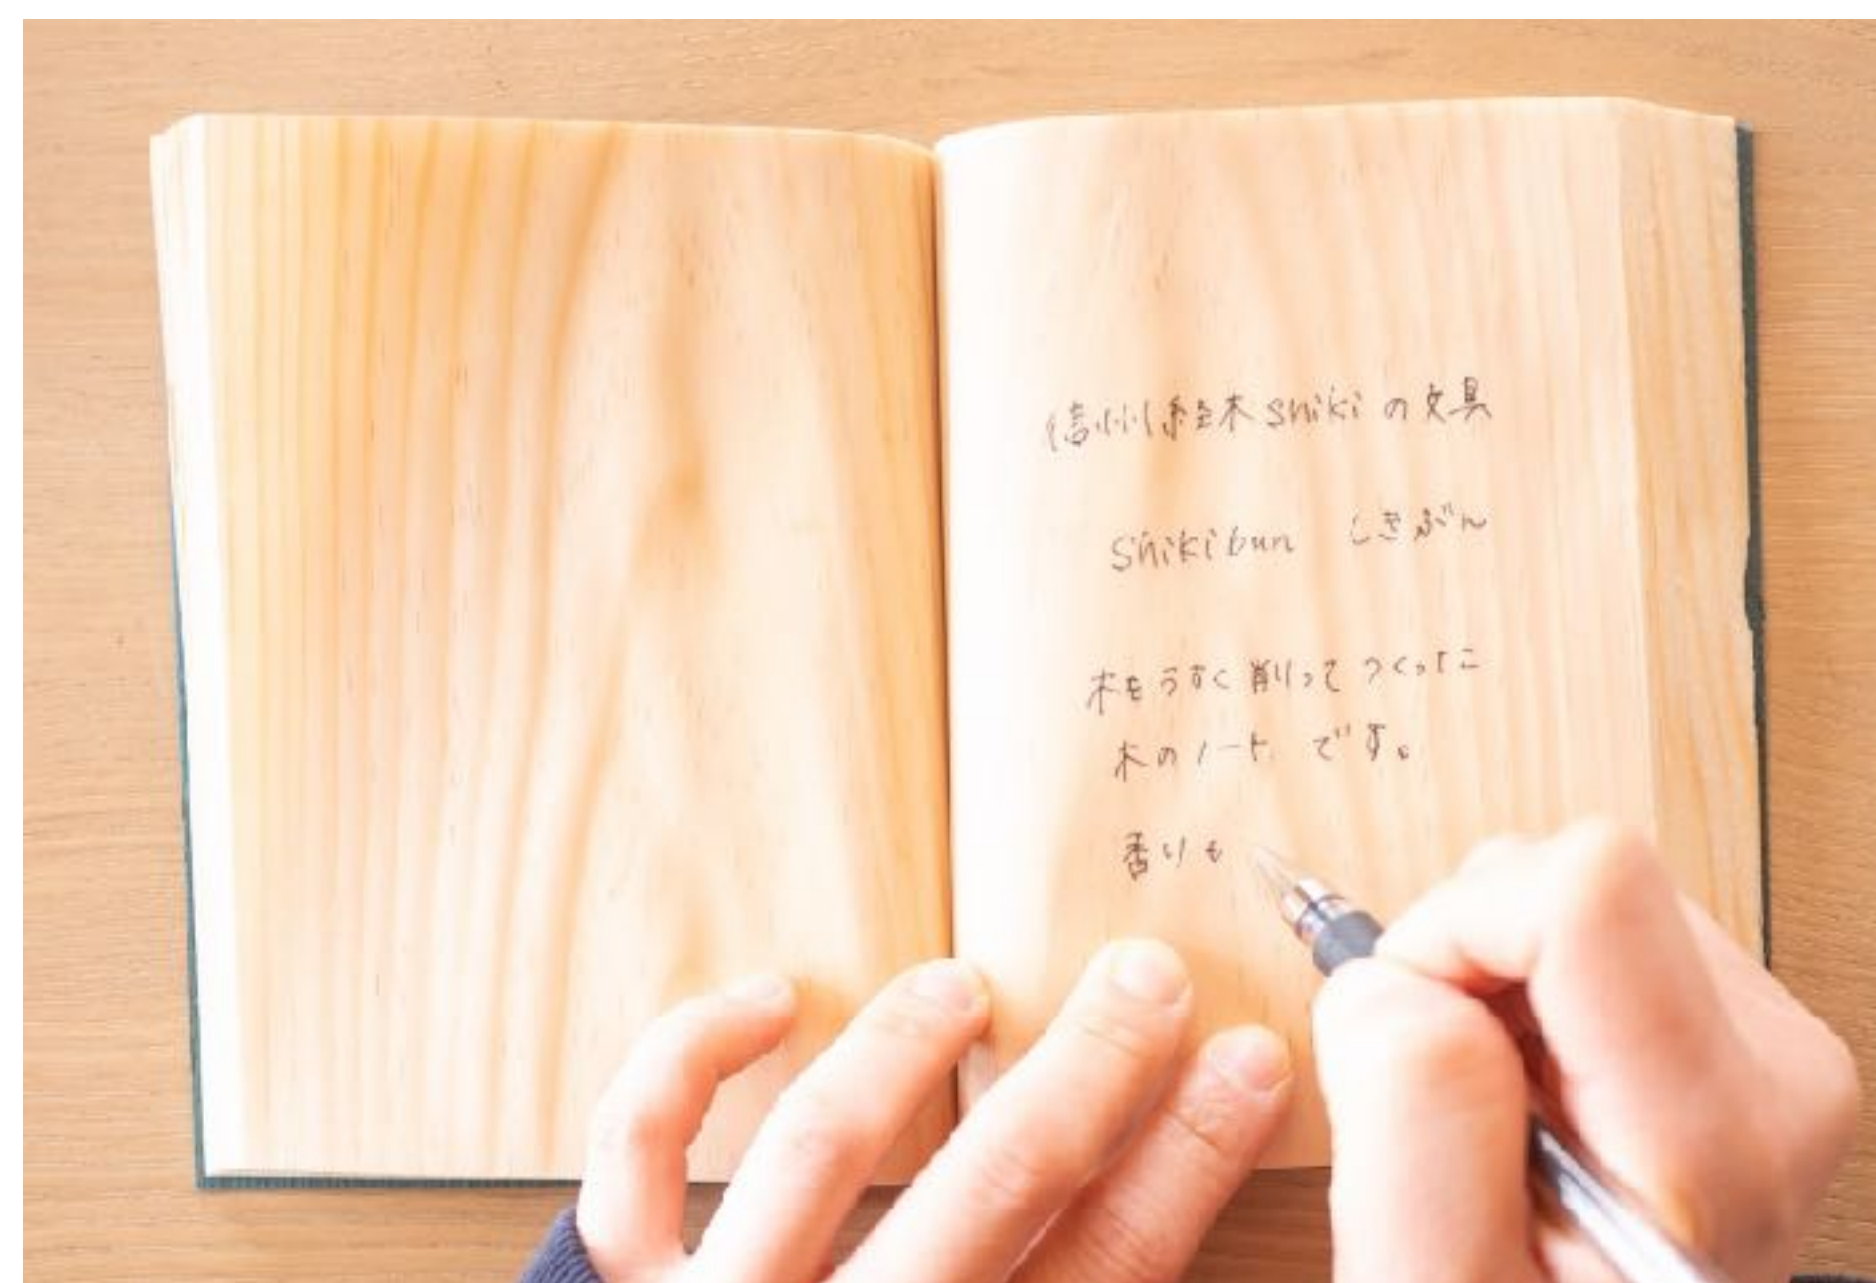 信州経木shikiの文具
shikibun しきぶん
木をうすく削ってつくった
木のノートです。
香りも